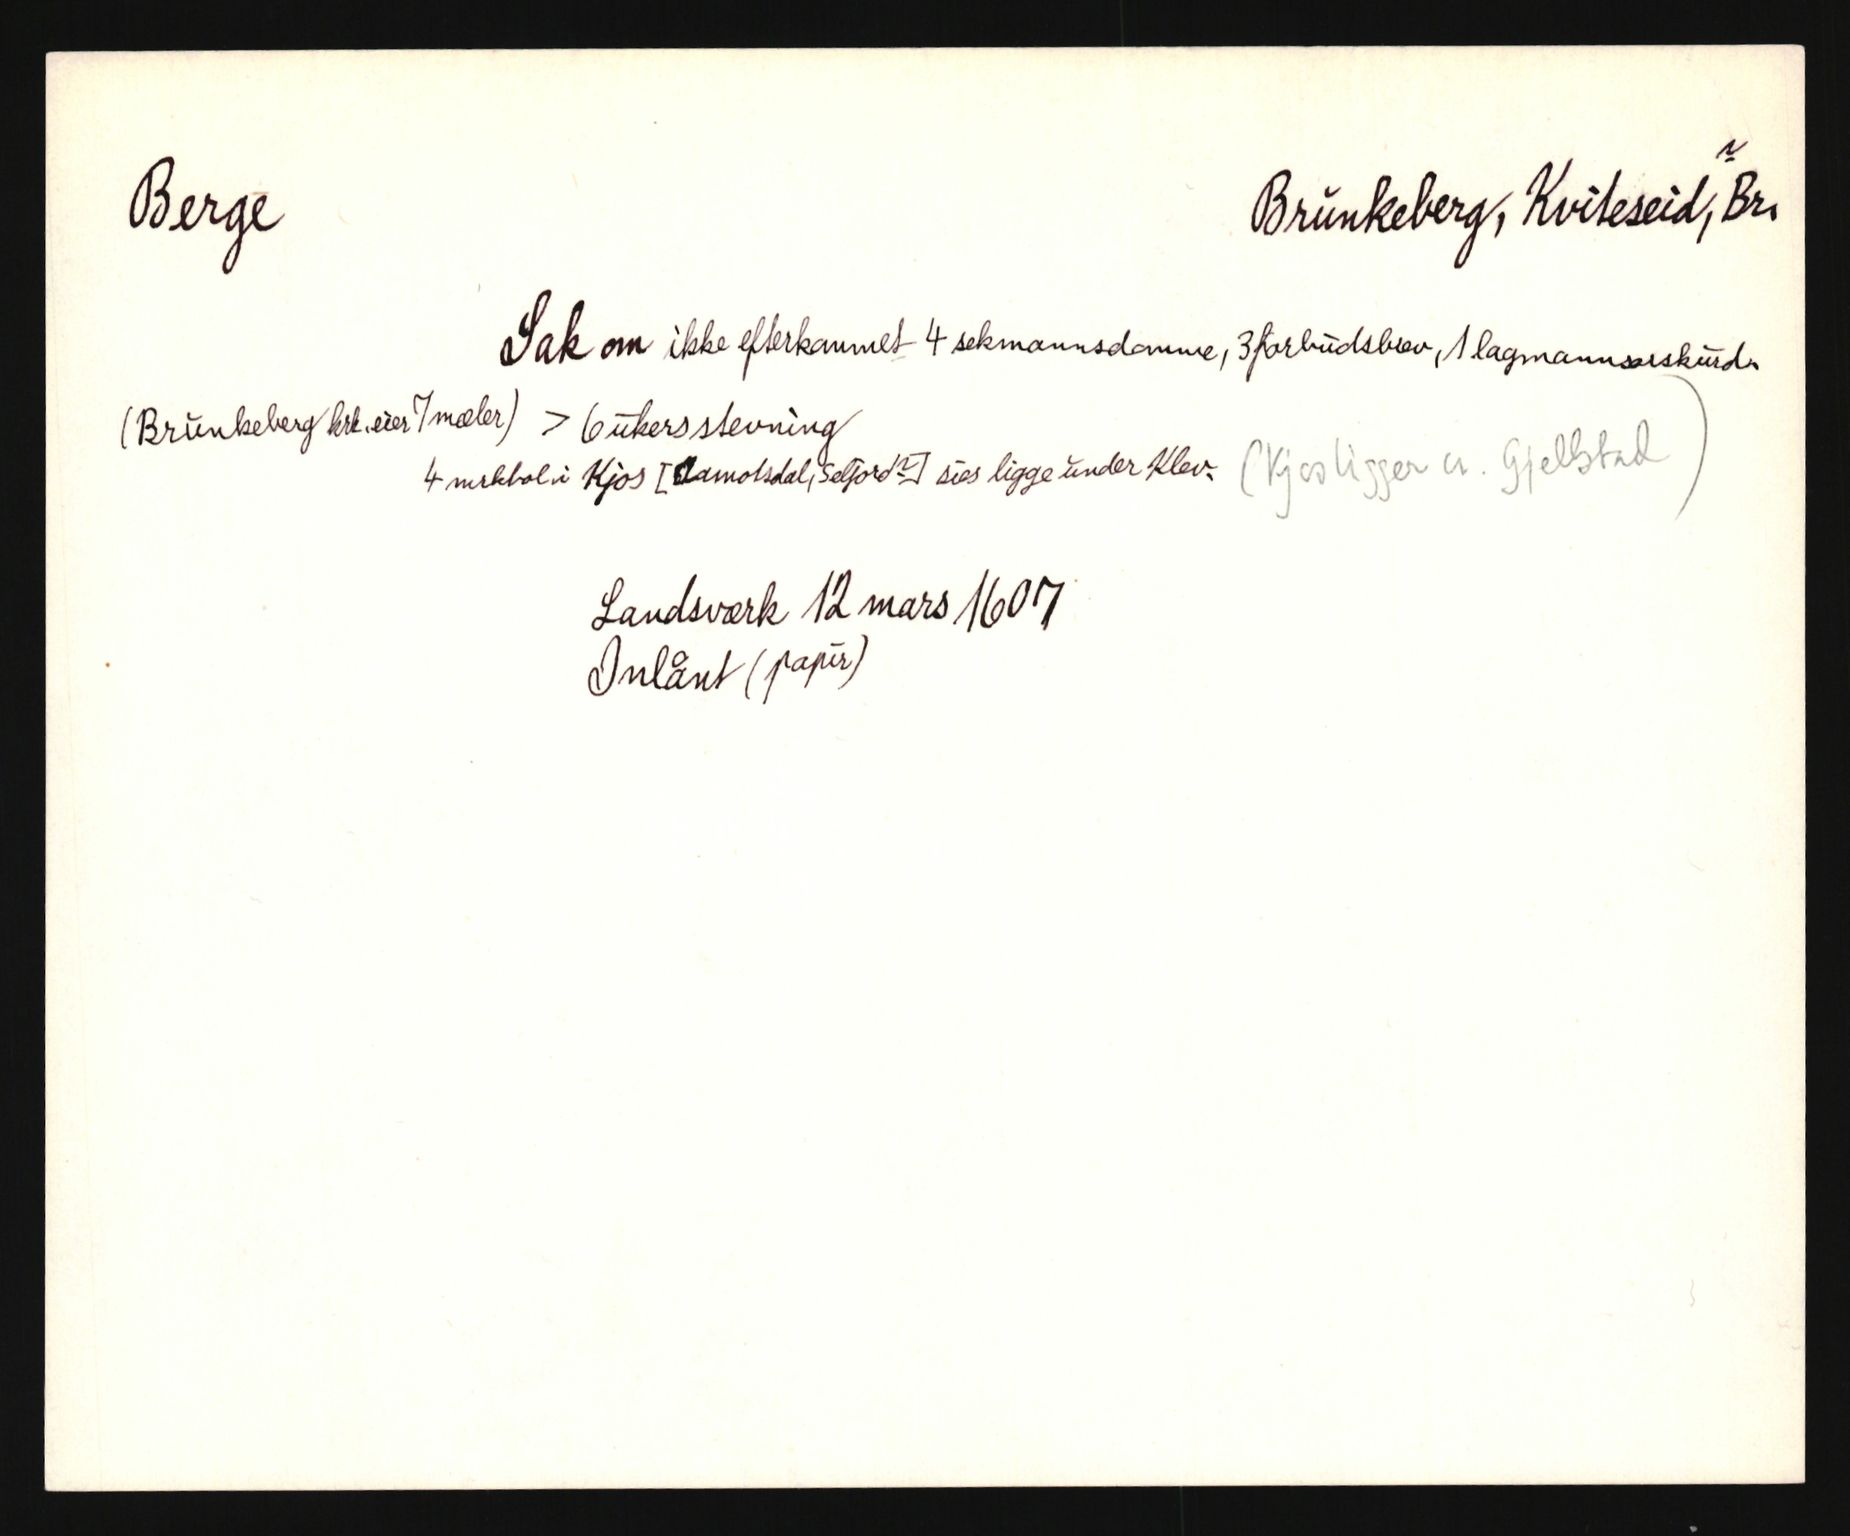 Berge
Brunkeberg, Kviteseid, Br.
Sak om ikke efterkommet 4 seksmannsdomme, 3 forbudsbrev, 1 lagmannsorskurd.
(Brunkeberg krk. eier 7 mæler) > 6 ukersstevning
4 mrkbol i Kjos [Åmotsdal, Seljord] sies ligge under Klev. (Kjos ligger u. Gjellstad)
Landsverk 12 mars 1607
Inlånt (papir)